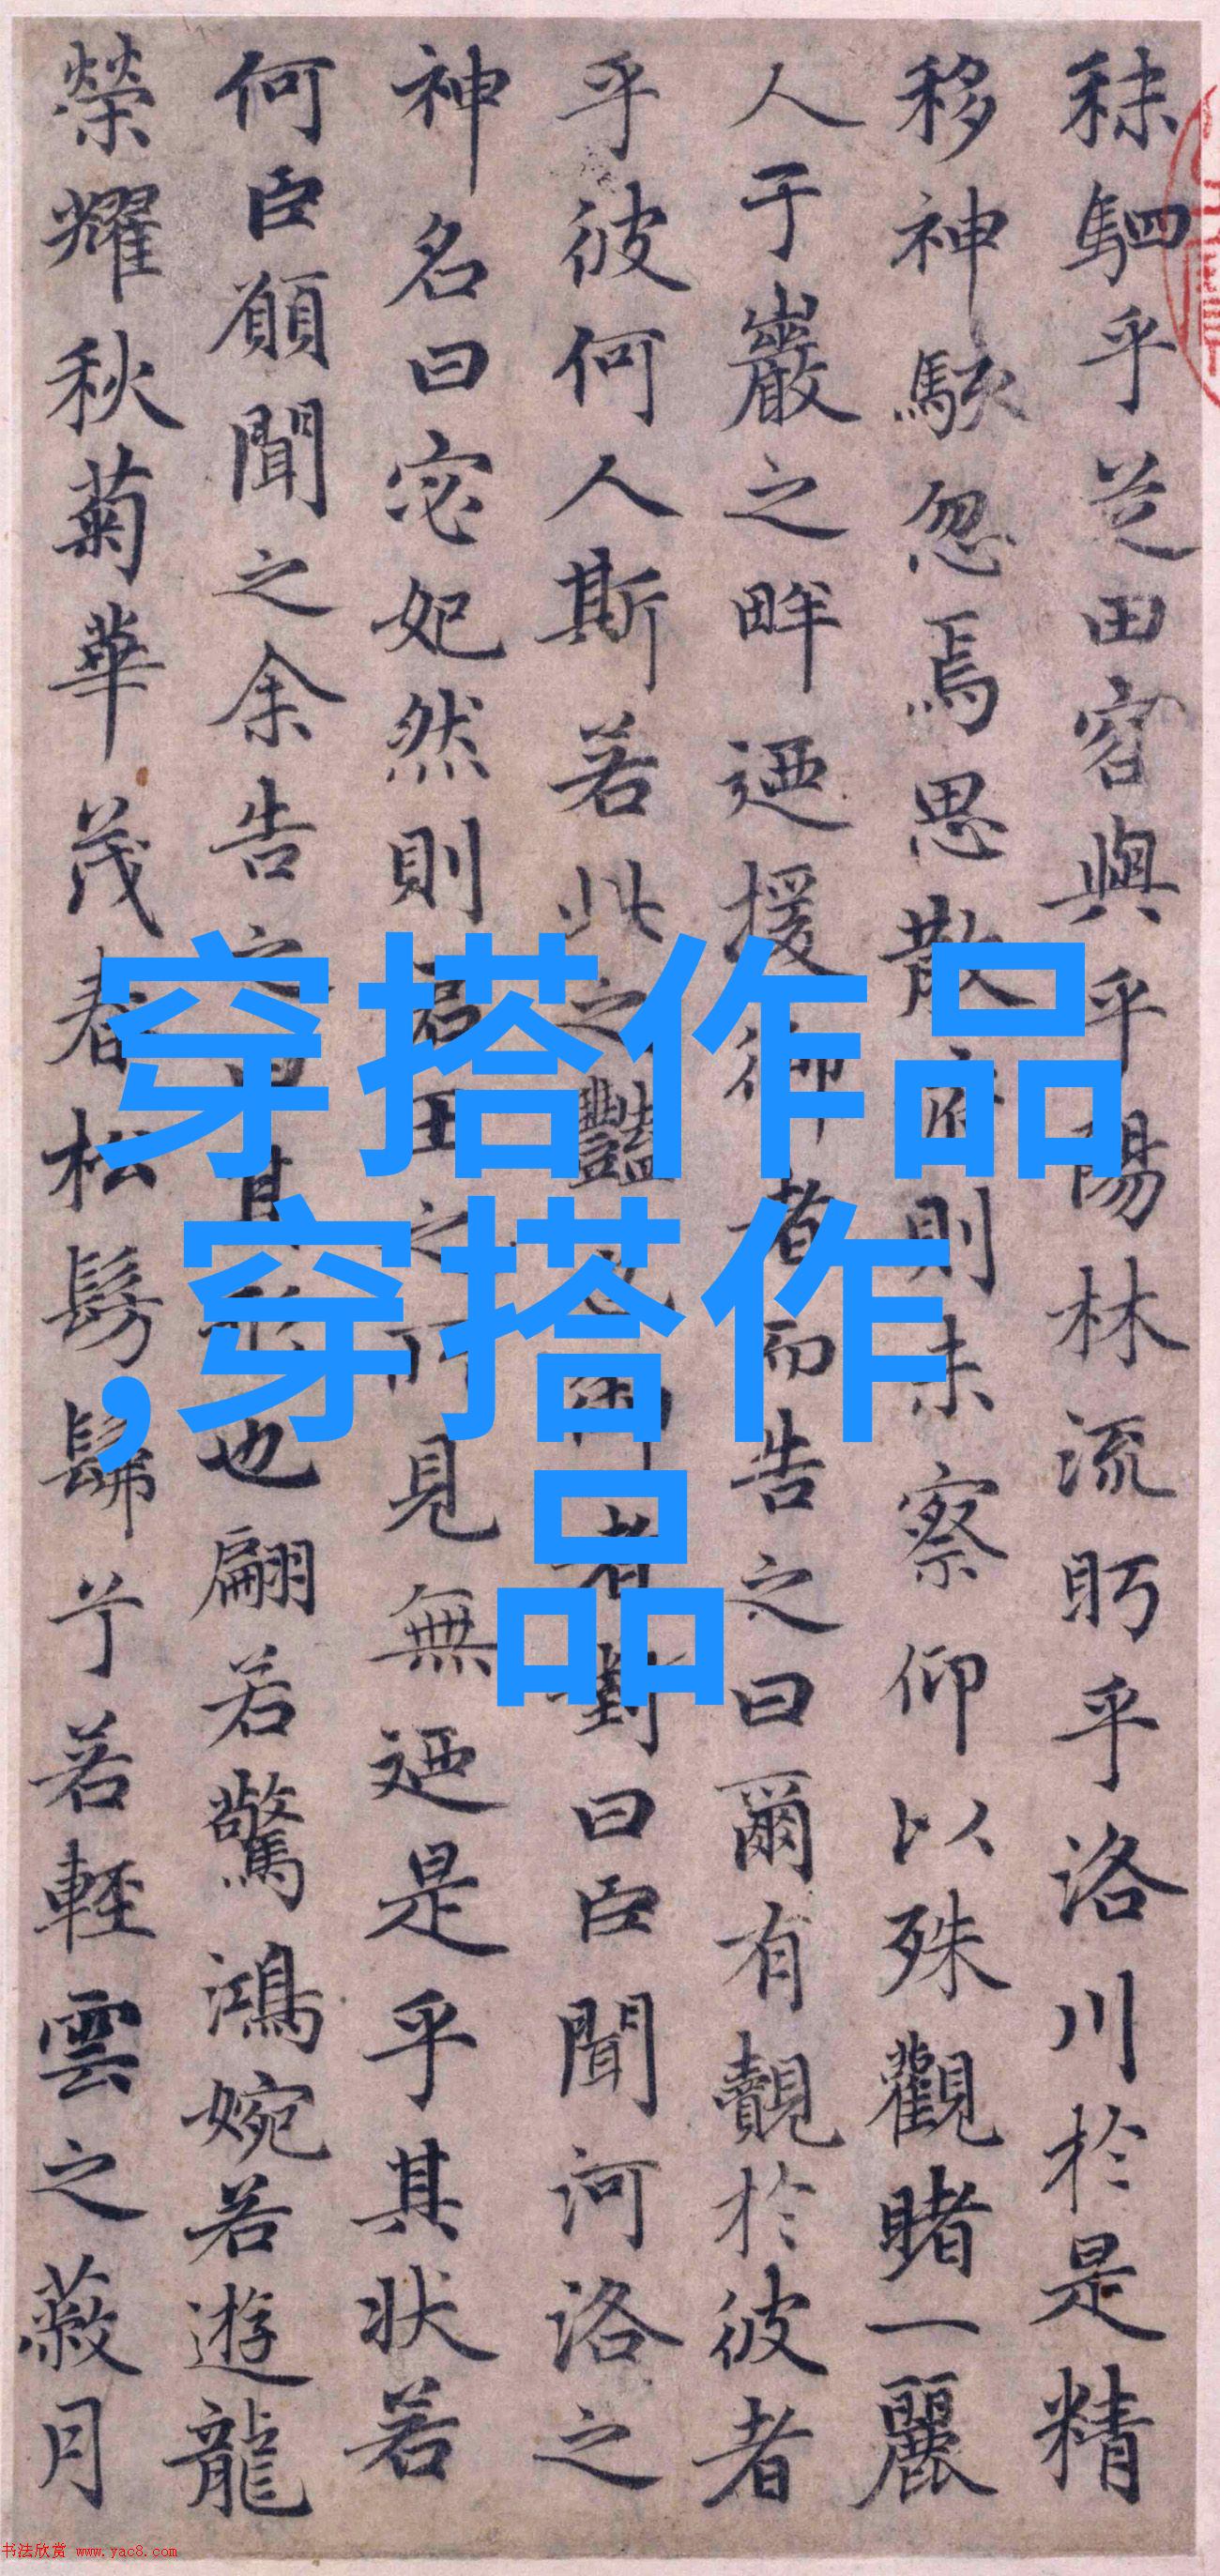 秣駟乎芝田容與乎陽林流眄乎洛川於是精
移神駭忽焉思散俯則未察仰以殊觀睹一麗
人于巖之畔迺援御者而告之曰爾有覿於彼者
乎彼何人斯若此之豔也御者對曰臣聞河洛之
神名曰宓妃然則君王之所見無迺是乎其状若
何臣願聞之余告之曰其形也翩若驚鴻婉若遊龍
榮耀秋菊華茂春松髣髴兮若輕雲之蔽月
穿搭作品
,穿搭作
品
书法欣赏 www.yac8.com